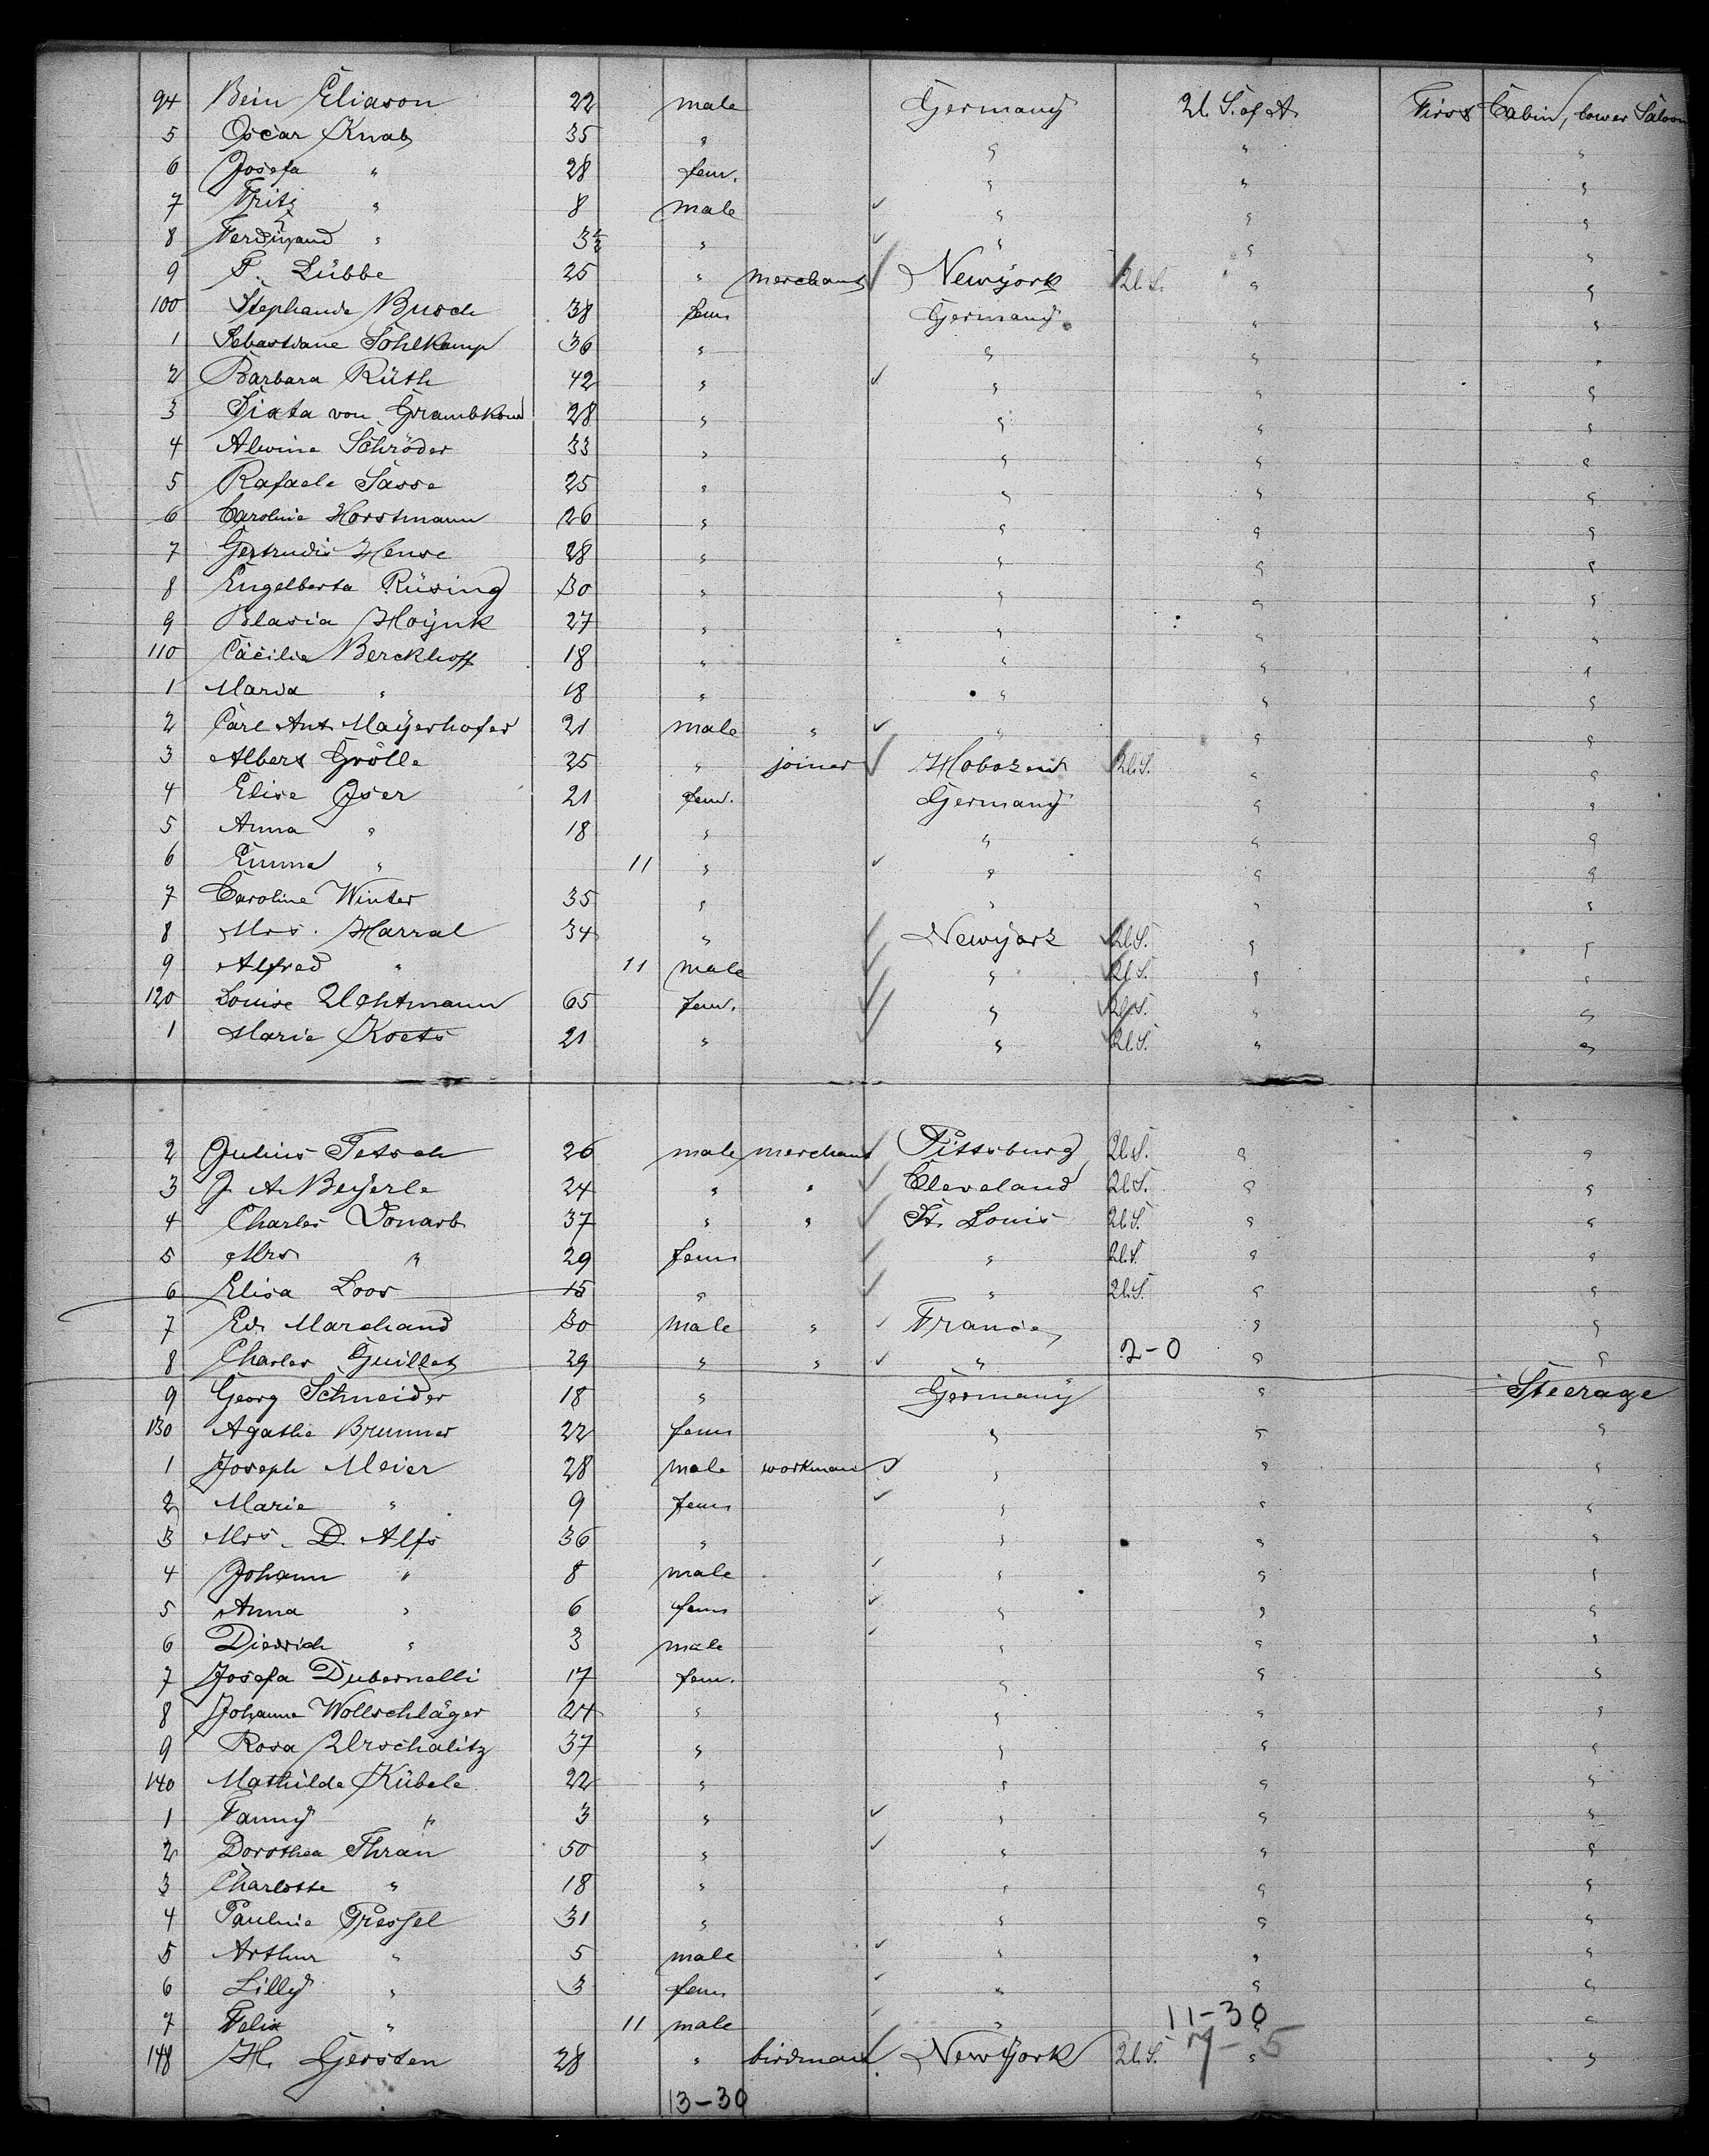 94 Bein Eliason 22 male Germany U. S. of A. First Cabin, lower Saloon
5 Oscar Knab 35 " " " "
6 Josefa " 28 fem. " " "
7 Fritz " 8 male ✓ " " "
8 Ferdinand " 3½ " ✓ " " "
9 F. Lübbe 25 " merchant ✓ Newyork U.S. " "
100 Busch 38 fem Germany " "
1 Sohlkamp 36 " " " "
2 Barbara Rüth 42 " ✓ " " "
3 von 28 " " " "
4 Alwine Schröder 33 " " " "
5 Rafaele Sasse 25 " " " "
6 Caroline Horstmann 26 " " " "
7 Gertrudis Hense 28 " " " "
8 Engelberta Rüsing 30 " " " "
9 Blasia Hoÿnk 27 " " " "
110 Cäcilia Berckhoff 18 " " " "
1 Maria " 18 " " " "
2 Carl Ant. Mayerhofer 21 male " ✓ " " "
3 Albert Grölle 25 " joiner ✓ Hoboken U.S. " "
4 Elise Iser 21 fem. Germany " "
5 Anna " 18 " " " "
6 Emma " 11 " ✓ " " "
7 Caroline Winter 35 " " " "
8 Mrs. Harral 34 " ✓ Newyork U.S. " "
9 Alfred " 11 male ✓ " U.S. " "
120 Louise Uchtmann 65 fem. ✓ " U.S. " "
1 Marie Koets 21 " ✓ " U.S. " "
2 Julius Tetsch 26 male merchant ✓ Pittsburg U.S. " "
3 J. A. Beyerle 24 " " ✓ Cleveland U.S. " "
4 Charles 37 " " ✓ St. Louis U.S. " "
5 Mrs " 29 fem ✓ " U.S. " "
6 Elisa Loos 15 " ✓ " U.S. " "
7 Ed. Marchand 30 male " ✓ France " "
8 Charles Guillet 29 " " ✓ " 2-0 " "
9 Georg Schneider 18 " Germany " Steerage
130 Agathe Brunner 22 fem " " "
1 Joseph Meier 28 male workman ✓ " " "
2 Marie " 9 fem ✓ " " "
3 Mrs. D. Alfs 36 " " " "
4 Johann " 8 male ✓ " " "
5 Anna " 6 fem ✓ " " "
6 Diedrich " 3 male ✓ " " "
7 Josefa Dubernelli 17 fem. " " "
8 Johanna Wollschläger 24 " " " "
9 Rosa Urschalitz 37 " " " "
140 Mathilde Kübele 22 " " " "
1 Fanny " 3 " ✓ " " "
2 Dorothea Thran 50 " ✓ " " "
3 Charlotte " 18 " " " "
4 Pauline Pressel 31 " " " "
5 Arthur " 5 male ✓ " " "
6 Lilly " 3 fem ✓ " " "
7 Felix " 11 male ✓ " 11-30 " "
148 H. Gersten 28 " birdman ✓ NewYork U.S. 7-5 " "
13-30